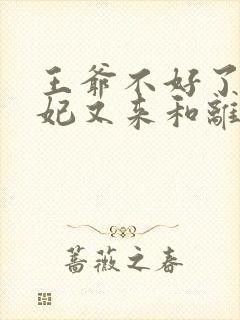 王爺不好了
妃又来和離
蔷薇之春